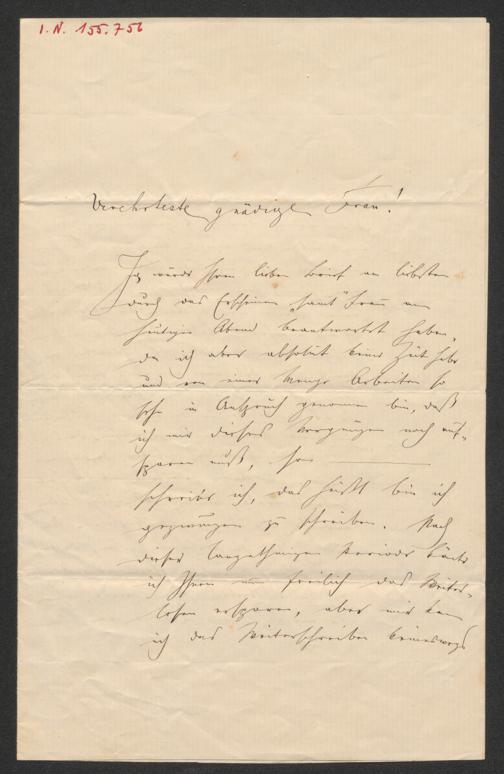 I. N. 155.756
Verehrteste gnädige Frau!
Ich würde Ihren lieben Brief am liebsten
durch das Erscheinen "samt" Frau am
heutigen Abend beantwortet haben,
da ich aber absolut keine Zeit habe
und von einer Menge Arbeiten so
sehr in Anspruch genommen bin, daß
ich mir dieses Vergnügen noch auf-
sparen muß, so
schreibe ich, das heißt bin ich
gezwungen zu schreiben. Nach
dieser langathmigen Periode könnte
ich Ihnen nun freilich das Weiter-
lesen ersparen, aber mir kann
ich das Weiterschreiben keineswegs